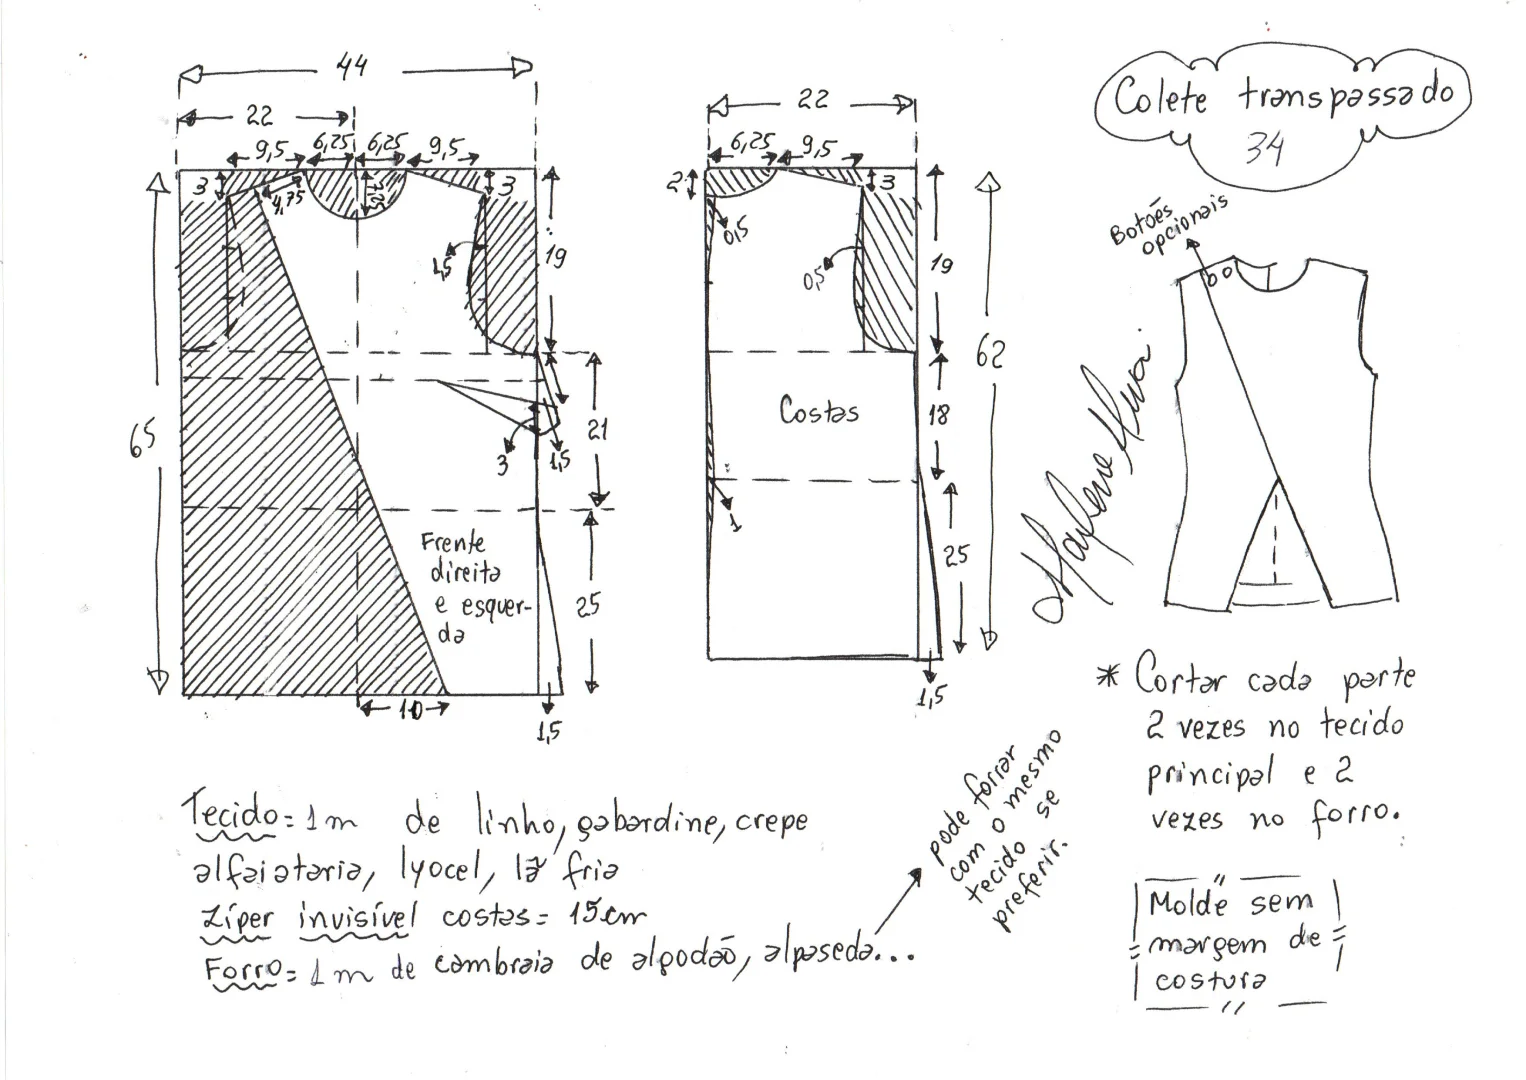 Colete transpassado
34
Botões
opcionais
44
22
9,5
6,25
6,25
9,5
3
4,75
7,25
3
1,5
19
65
3
1,5
21
Frente
direita
e esquer-
da
25
10
1,5
22
6,25
9,5
2
0,5
3
0,5
19
62
Costas
18
1
25
1,5
* Cortar cada parte
2 vezes no tecido
principal e 2
vezes no forro.
Tecido= 1m de linho, gabardine, crepe
alfaiataria, lyocel, lã fria
Zíper invisível costas= 15cm
Forro= 1m de cambraia de algodão, alpaseda...
pode forrar
com o mesmo
tecido se
preferir.
Molde sem
margem de
costura